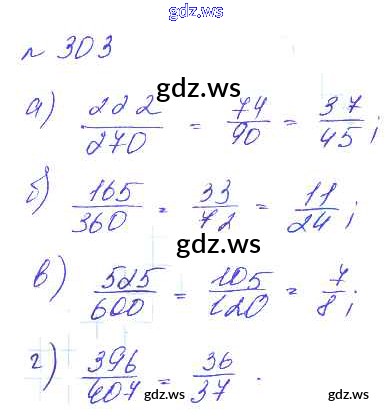 gdz.ws
№ 303
gdz.ws
а) 222/270 = 74/90 = 37/45;
б) 165/360 = 33/72 = 11/24;
gdz.ws
в) 525/600 = 105/120 = 7/8;
г) 396/407 = 36/37.
gdz.ws